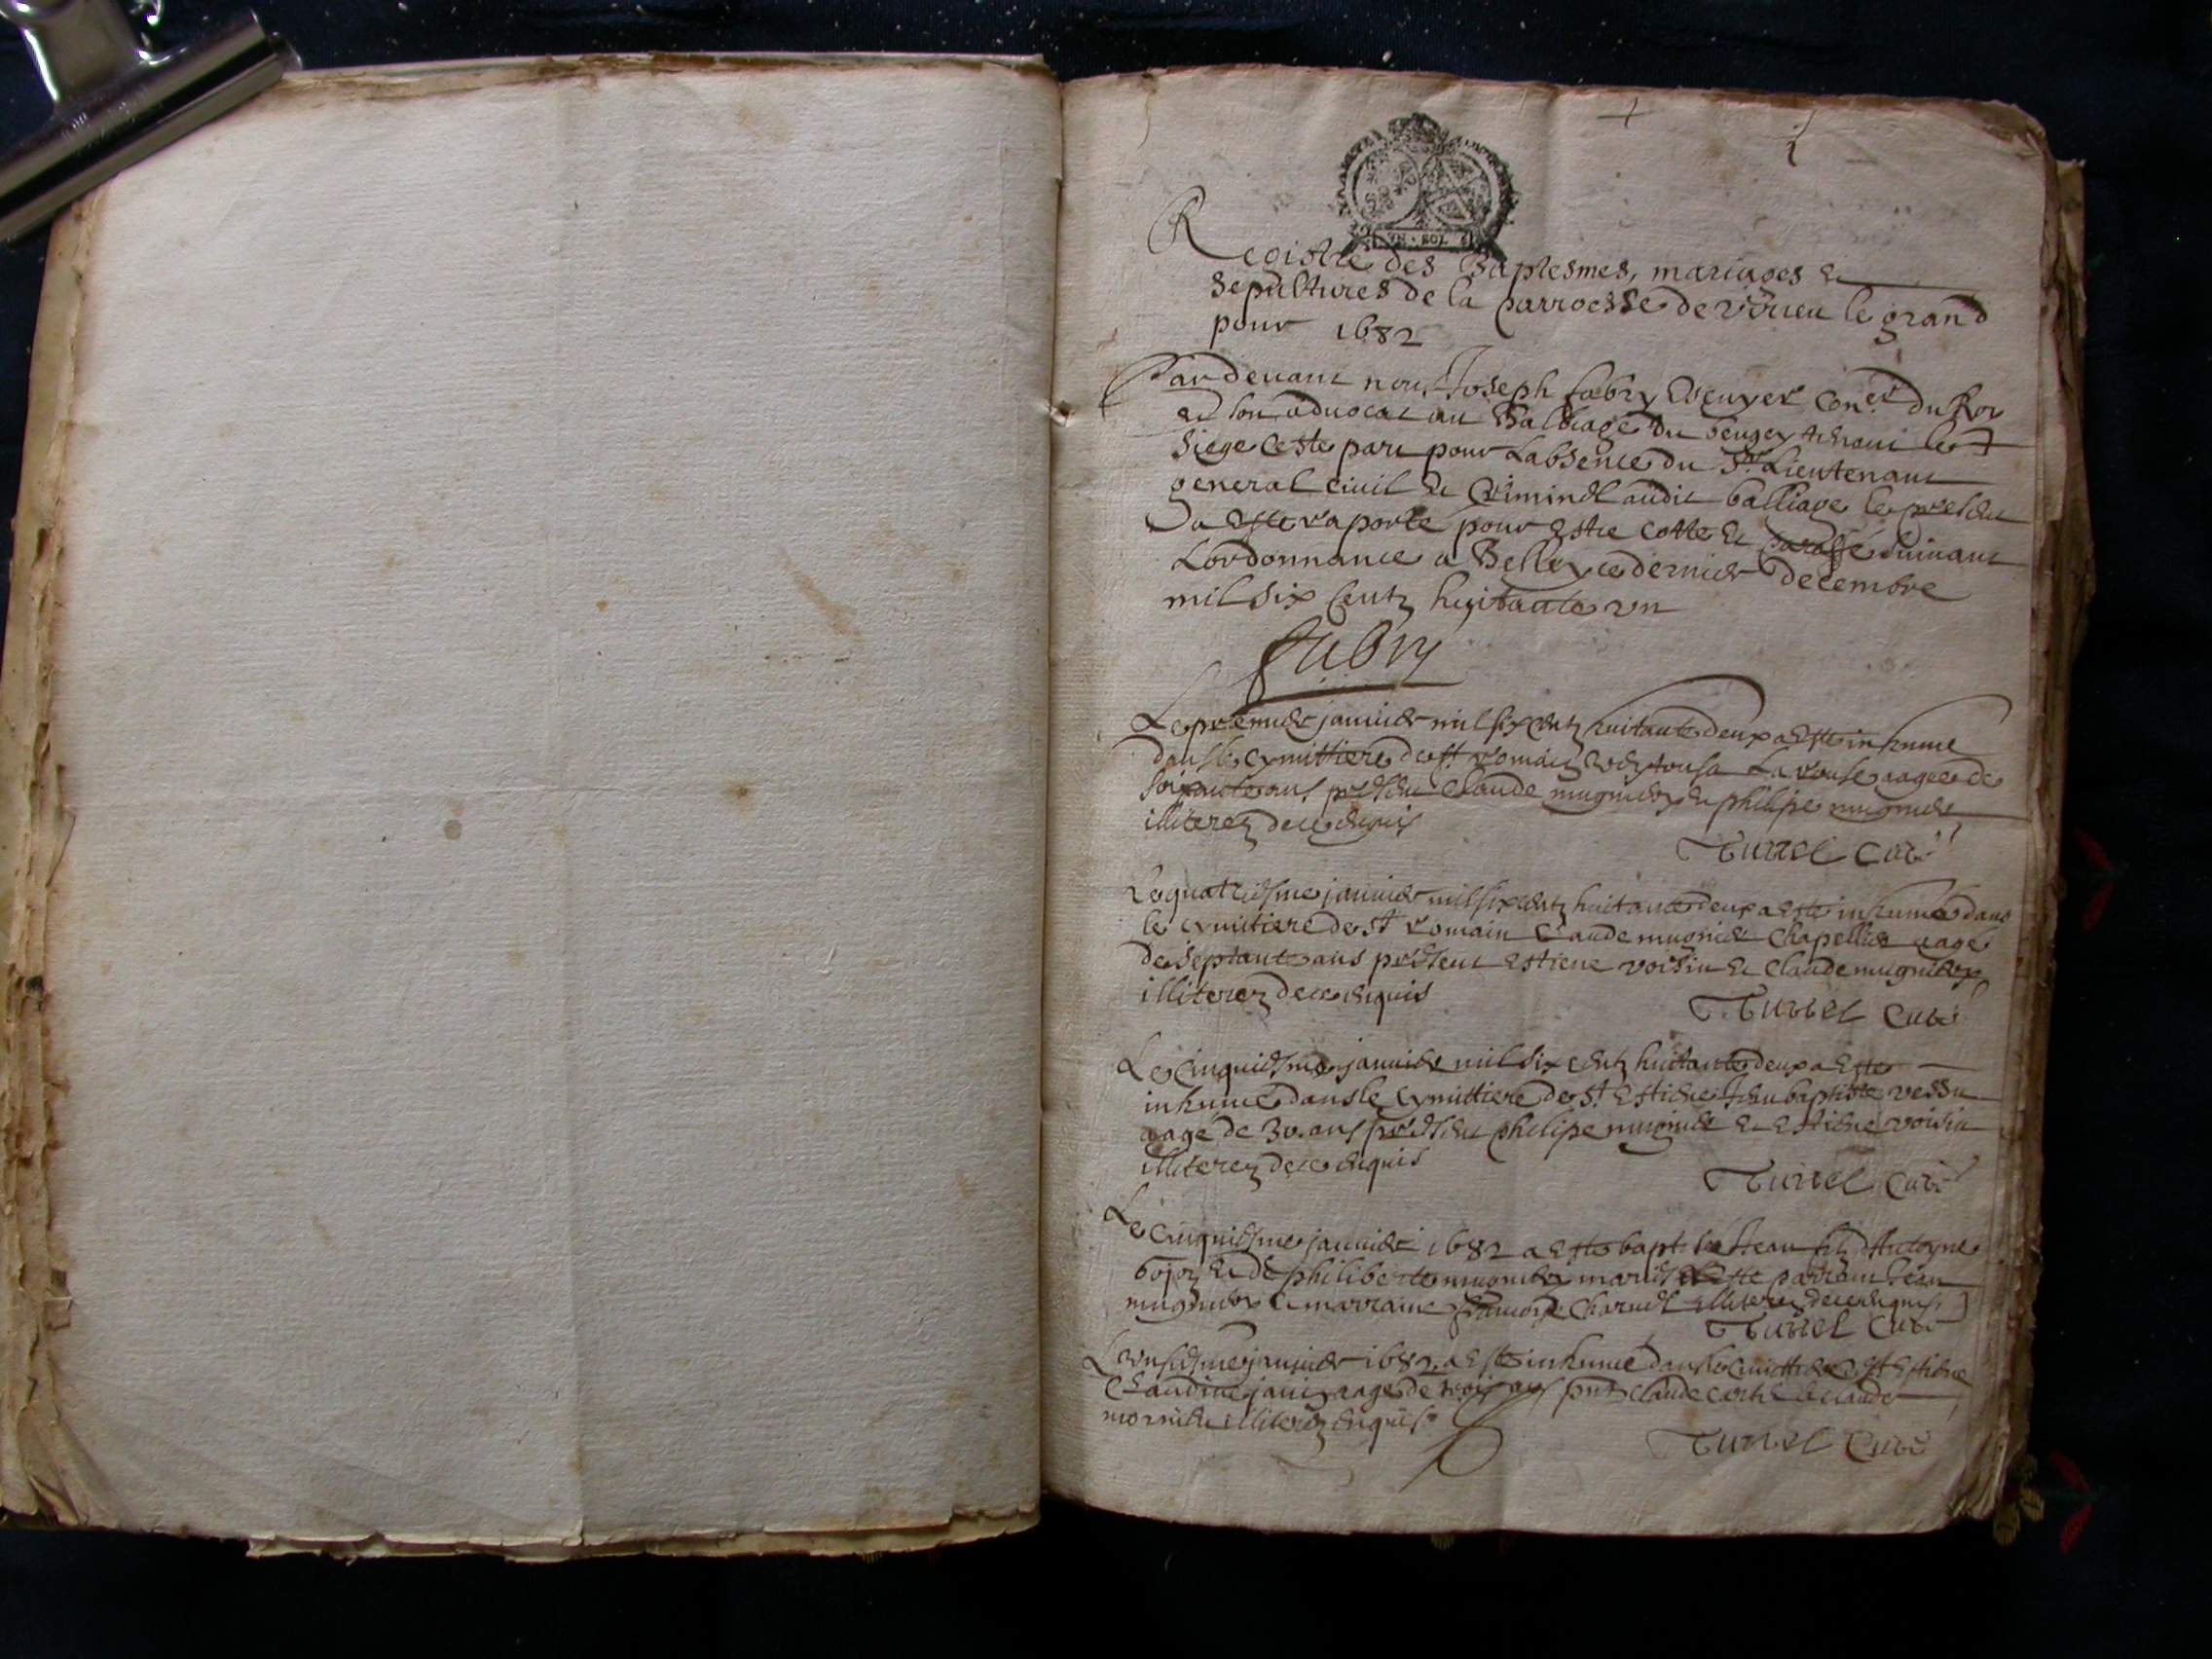 1
VN · SOL
Registre des Baptesmes, mariages et
sepultures de la parroesse de virieu le grand
pour 1682
Pardevant nous Joseph fabry Escuyer Coner du Roy
et son advocat au Balliage du beugey
Siege ceste part pour Labsence du Sr Lieutenant
general civil et Criminel audit balliage le present
a este raporte pour estre cotte et paraffé suivant
Lordonnance a Belley ce dernier decembre
mil six centz huitante un
fabry
Le premier janvier mil six centz huitante deux a este inhume
dans le cymittiere de st romain La rouse aagee de
soixante ans present Claude mugnier et philipe mugnier
illiterez de ce enquis
Turrel Curé
Le quatriesme janvier mil six centz huitante deux a este inhumé dans
le cymitiere de st romain Claude mugnier Chapellier aagé
de septante ans present Estiene voisin et Claude mugnier
illiterez de ce enquis
Turrel Curé
Le Cinquiesme janvier mil six centz huittante deux a este
inhumé dans le cymittiere de st Estiene Jean baptiste vessu
aagé de 30. ans present philipe mugnier et Estiene voisin
illiterez de ce enquis
Turrel Curé
Le Cinquiesme janvier 1682 a este baptisé Jean filz d'Antoyne
et de philiberte mugnier mariés a este parrain Jean
mugnier et marraine francoise Charvet illiterez de ce enquis
Turrel Curé
L'onsiesme janvier 1682. a este inhumé dans le cimittiere de st Estiene
Claudine aagee de trois ans pnt claude et claude
illiterez enquis
Turrel Curé